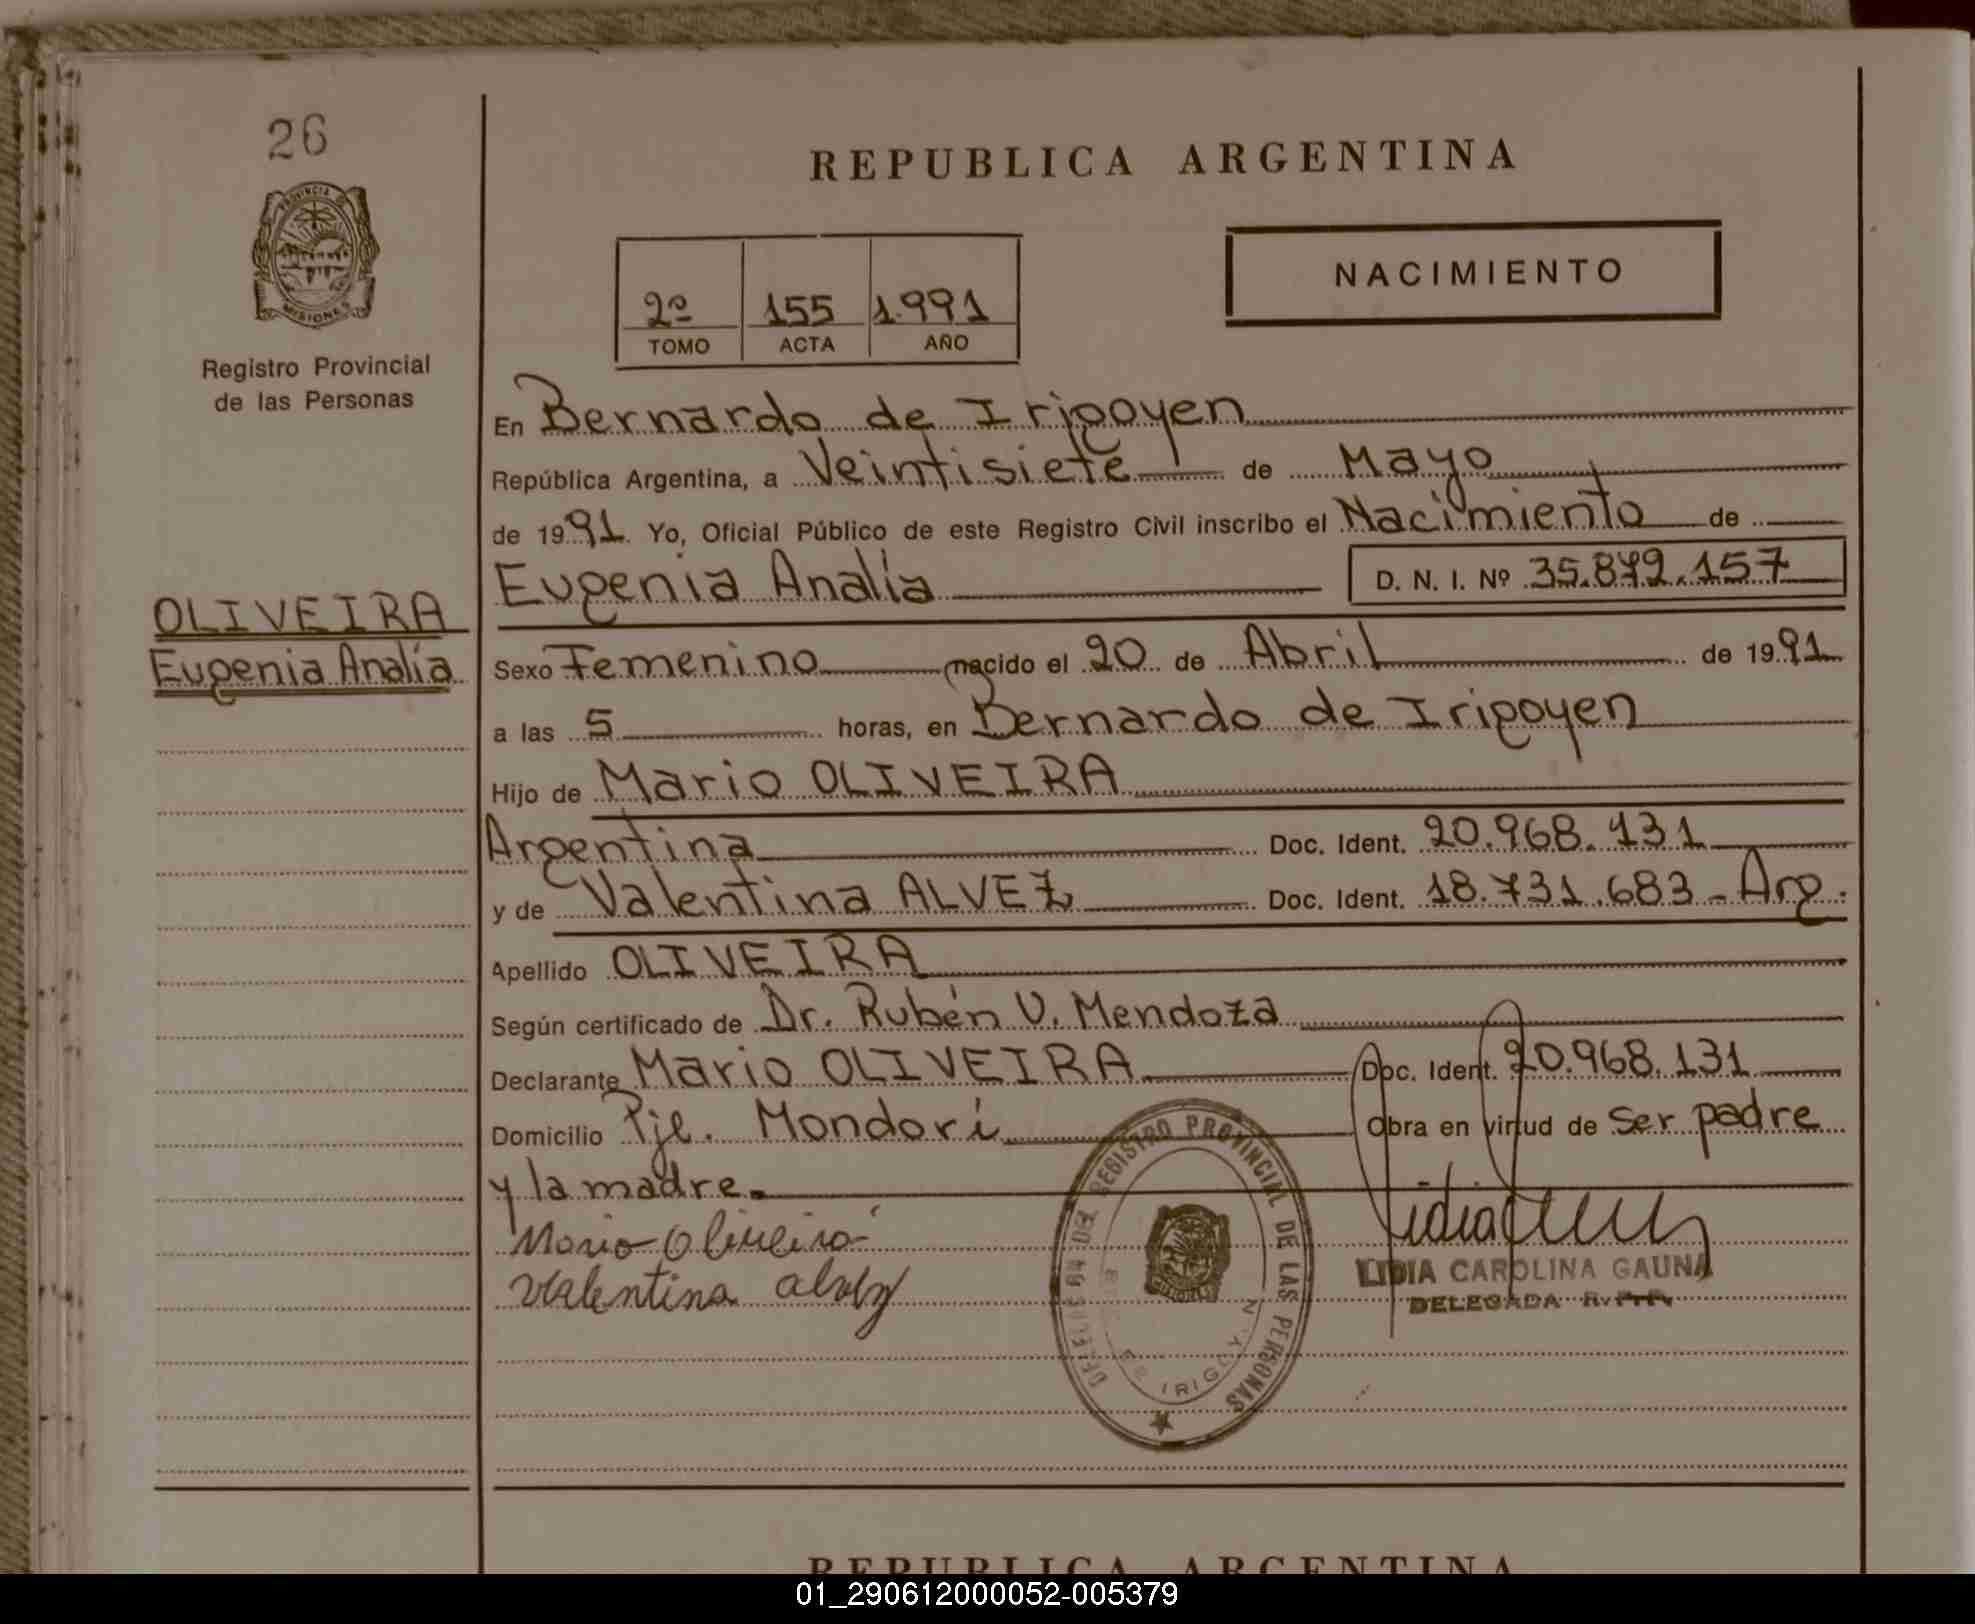 26
REPUBLICA ARGENTINA
PROVINCIA DE
MISIONES
NACIMIENTO
2º 155 1.991
TOMO ACTA AÑO
Registro Provincial
de las Personas
En Bernardo de Irigoyen
República Argentina, a Veintisiete de Mayo
de 1991. Yo, Oficial Público de este Registro Civil inscribo el Nacimiento de
Eugenia Analía D. N. I. Nº 35.872.157
OLIVEIRA
Eugenia Analía
Sexo Femenino nacido el 20 de Abril de 1991
a las 5 horas, en Bernardo de Irigoyen
Hijo de Mario OLIVEIRA
Argentina Doc. Ident. 20.968.131
y de Valentina ALVEZ Doc. Ident. 18.731.683 - Arg.
Apellido OLIVEIRA
Según certificado de Dr. Rubén V. Mendoza
Declarante Mario OLIVEIRA Doc. Ident. 20.968.131
Domicilio Pje. Mondorí Obra en virtud de ser padre
y la madre.
Mario Oliveira
Valentina alvez
DELEGACION DEL REGISTRO PROVINCIAL DE LAS PERSONAS
DE IRIGOYEN
LIDIA CAROLINA GAUNA
DELEGADA R.P.P.
REPUBLICA ARGENTINA
01_290612000052-005379